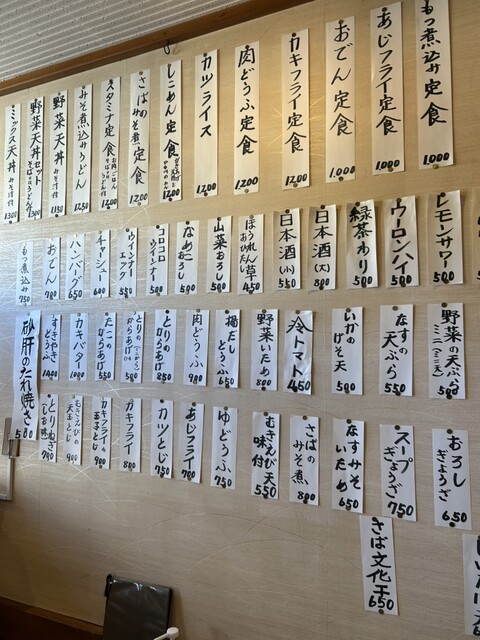 もつ煮込み定食 1,000
あじフライ定食 1,000
おでん定食 1,000
カキフライ定食 1200
肉どうふ定食 1,200
カツライス 1200
しこめん定食 1200
さばのみそ煮定食 1200
スタミナ定食
みそ煮込みうどん 1250
野菜天丼 みそ汁付 1150
野菜天丼セット 1350
ミックス天丼 みそ汁付 1300
レモンサワー 500
ウーロンハイ 500
緑茶わり 500
日本酒(大) 800
日本酒(小) 550
ほうれん草 450
山菜おろし 500
なめおろし 500
コロコロウインナー 500
ウインナーエッグ 550
チャーシュー 600
ハンバーグ 650
おでん 700
もつ煮込み 750
野菜の天ぷら 500
なすの天ぷら 550
いかのげそ天 500
冷トマト 450
野菜いため 800
揚だしどうふ 650
肉どうふ 900
とりのからあげ 850
とりのからあげ 500
たこのからあげ 550
カキバター 1000
すきやきどうふ 1400
砂肝のたれ焼き 580
おろしぎょうざ 650
スープぎょうざ 750
なすみそいため 650
さばのみそ煮 800
むきえび天 味付 550
ゆどうふ 750
あじフライ 700
カツとじ 750
カキフライ 800
カキフライの玉子とじ 900
むきえびの天玉とじ 900
とりねぎ 700
さば文化干 650